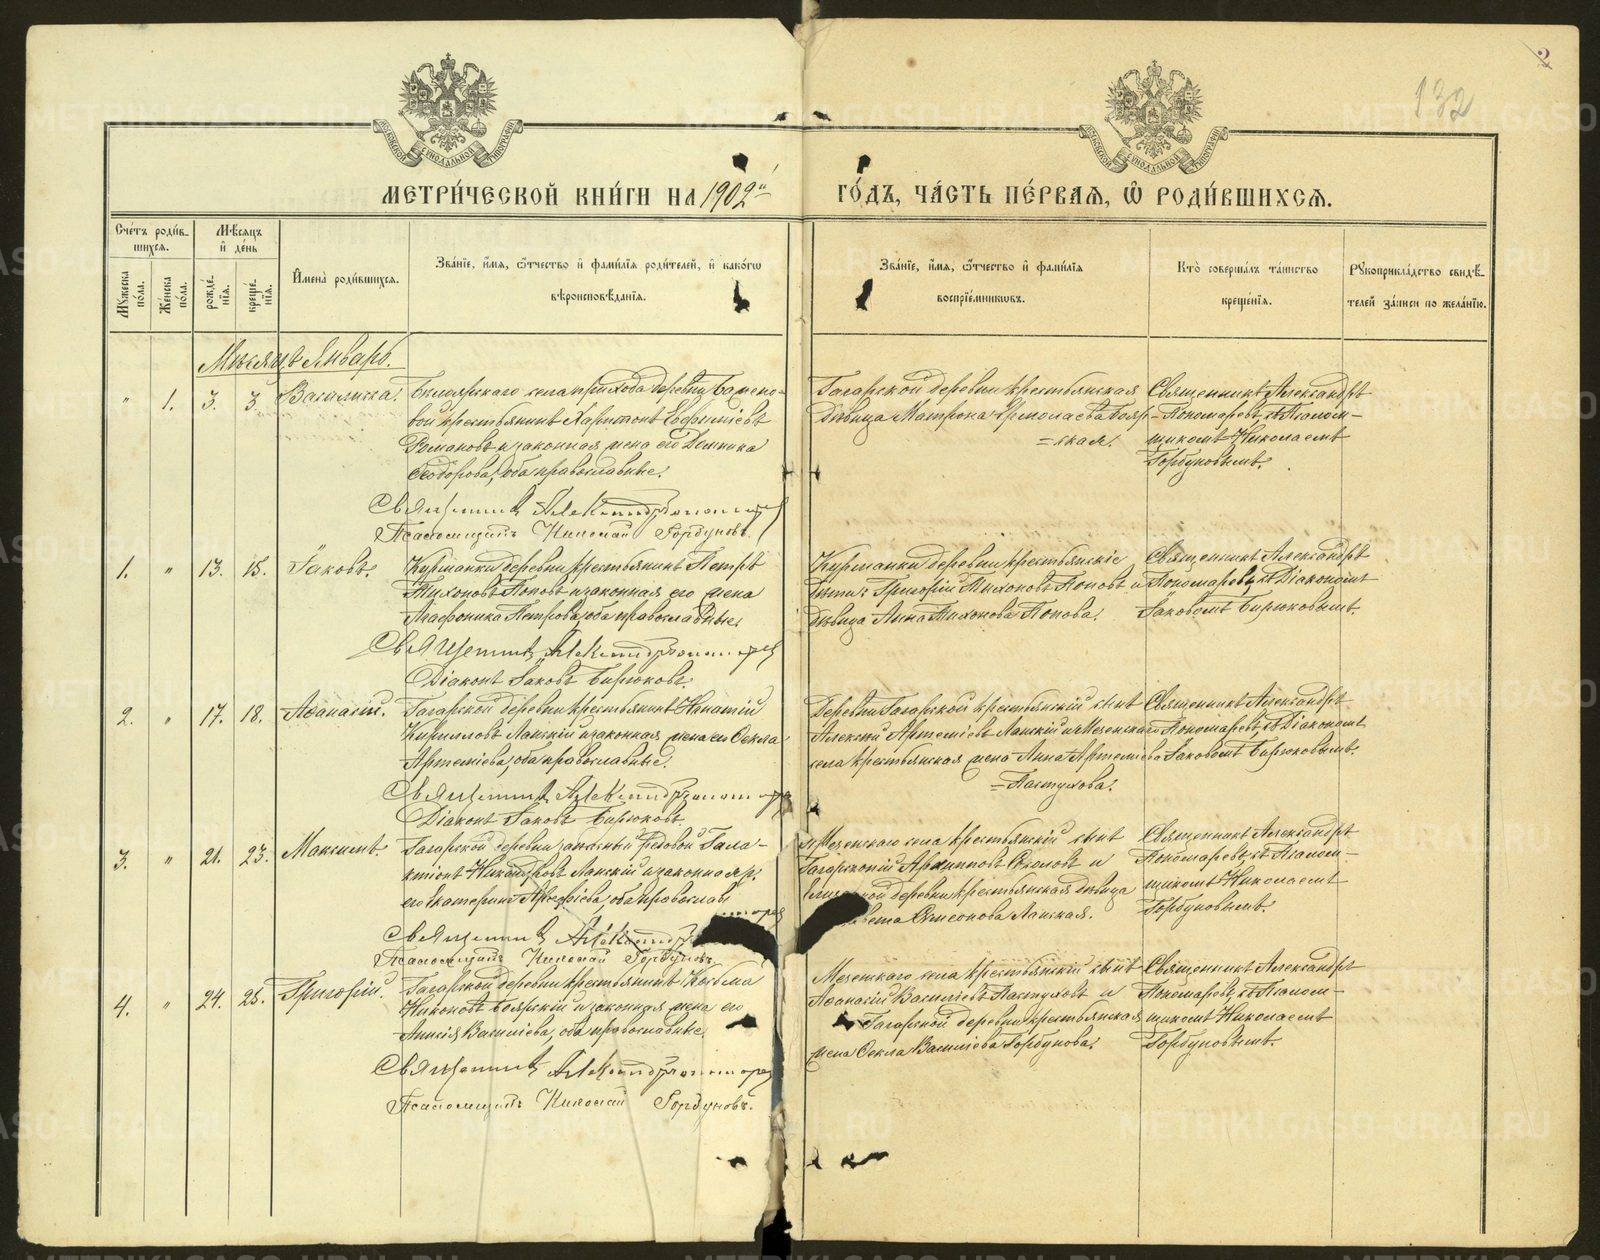 2
132
МОСКОВСКОЙ СУНОДАЛЬНОЙ ТИПОГРАФИИ
МОСКОВСКОЙ СУНОДАЛЬНОЙ ТИПОГРАФИИ
МЕТРИ́ЧЕСКОЙ КНИ́ГИ НА 1902й ГО́ДЪ, ЧА́СТЬ ПЕ́РВАЯ, Ѽ РОДИ́ВШИХСЯ.
Сче́тъ роди́в-
шихся.
Мꙋжеска по́ла.
Женска по́ла.
Мѣ́сяцъ
и҆ де́нь
рожде́нїя.
креще́нїя.
И҆мена̀ роди́вшихся.
Зва́нїе, и҆́мя, ѻ҆́тчество и҆ фами́лїя роди́телей, и҆ како́гѡ
вѣроисповѣ́данїя.
Зва́нїе, и҆́мя, ѻ҆́тчество и҆ фами́лїя
воспрїе́мникѡвъ.
Кто̀ соверша́лъ та́инство
креще́нїя.
Рꙋкоприкла́дство свидѣ́-
телей за́писи по жела́нїю.
Мѣсяцъ Январь.
" 1. 3. 3. Василисса.
села прихода деревни
вой крестьянинъ Харитонъ Евфиміевъ
Романовъ и законная жена его Домника
Ѳеодорова, оба православные.
Священникъ Александръ Пономаревъ
Псаломщикъ Николай Горбуновъ.
Гагарской деревни крестьянская
дѣвица Матрона Ермолаева Бояр-
=ская.
Священникъ Александръ
Пономаревъ, съ Псалом-
щикомъ Николаемъ
Горбуновымъ.
1. " 13. 15. Іаковъ.
Курманки деревни крестьянинъ Петръ
Тихоновъ Поповъ и законная его жена
Агафоника Петрова, оба православные.
Священникъ Александръ Пономаревъ
Діаконъ Іаковъ Бирюковъ.
Курманки деревни крестьянскіе
дѣти: Григорій Тихоновъ Поповъ и
дѣвица Анна Тихонова Попова.
Священникъ Александръ
Пономаревъ, съ Діакономъ
Іаковомъ Бирюковымъ.
2. " 17. 18. Аѳанасій.
Гагарской деревни крестьянинъ Игнатій
Кирилловъ Ланскій и законная жена его Ѳекла
Артеміева, оба православные.
Священникъ Александръ Пономаревъ
Діаконъ Іаковъ Бирюковъ.
Деревни Гагарской крестьянскій сынъ
Алексій Артеміевъ Ланскій и Мезенскаго
села крестьянская жена Анна Артеміева
=Пастухова.
Священникъ Александръ
Пономаревъ, съ Діакономъ
Іаковомъ Бирюковымъ.
3. " 21. 23. Максимъ.
Гагарской деревни запасный рядовой Гала-
ктіонъ Никандровъ Ланскій и законная ж.
его Екатерина, оба православ
Священникъ Александръ
Псаломщикъ Николай Горбуновъ.
Мезенскаго села крестьянскій сынъ
Архипповъ и
деревни крестьянская дѣвица
Симеонова Ланская.
Священникъ Александръ
Пономаревъ, съ Псалом-
щикомъ Николаемъ
Горбуновымъ.
4. " 24. 25. Григорій.
Гагарской деревни крестьянинъ Козьма
Никоновъ Боярскій и законная жена его
Анисія Василіева, оба православные.
Священникъ Александръ Пономаревъ
Псаломщикъ Николай Горбуновъ.
Мезенскаго села крестьянскій сынъ
Аѳанасій Василіевъ Пастуховъ и
Гагарской деревни крестьянская
жена Ѳекла Василіева Горбунова.
Священникъ Александръ
Пономаревъ, съ Псалом-
щикомъ Николаемъ
Горбуновымъ.
METRIKI.GASO-URAL.RU